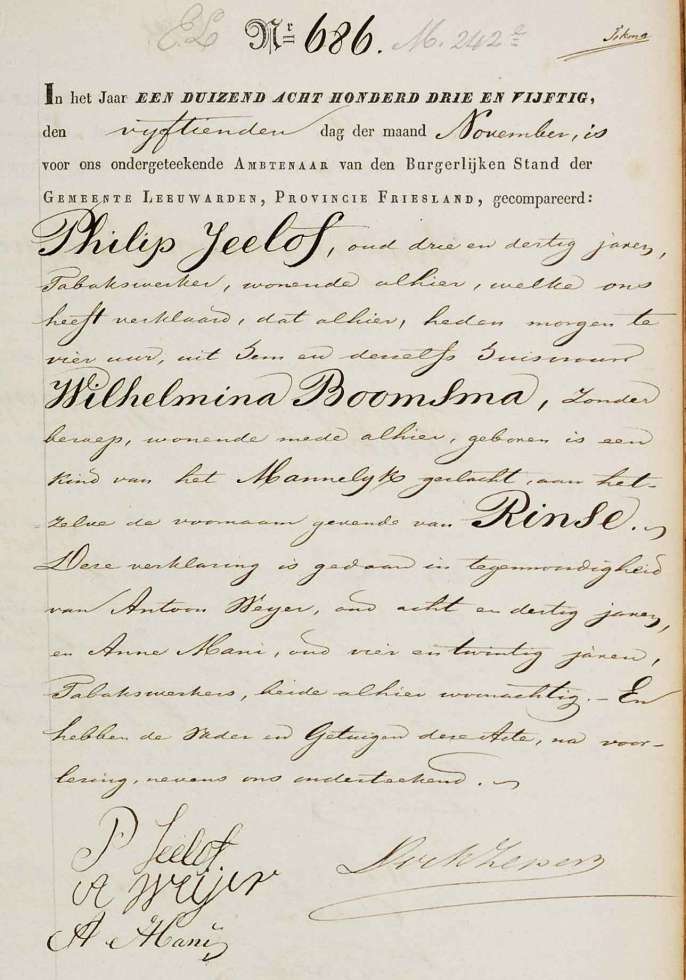 E.L N.r 686. M. 242 e
In het Jaar EEN DUIZEND ACHT HONDERD DRIE EN VIJFTIG,
den vyftienden dag der maand November, is
voor ons ondergeteekende AMBTENAAR van den Burgerlijken Stand der
GEMEENTE LEEUWARDEN, PROVINCIE FRIESLAND, gecompareerd:
Philip Jeelof, oud drie en dertig jaren,
Tabakswerker, wonende alhier, welke ons
heeft verklaard, dat alhier, heden morgen te
vier uur, uit hem en deszelfs huisvrouw
Wilhelmina Boomsma, zonder
beroep, wonende mede alhier, geboren is een
kind van het Mannelyk geslacht, aan het-
zelve de voornaam gevende van Rinse.
Deze verklaring is gedaan in tegenwoordigheid
van Antoon Weyer, oud acht en dertig jaren,
en Anne Mani, oud vier en twintig jaren,
Tabakswerkers, beide alhier woonachtig. – En
hebben de Vader en Getuigen deze Acte, na voor-
lezing, nevens ons onderteekend.
P Jeelof
A Weijer
A Mani